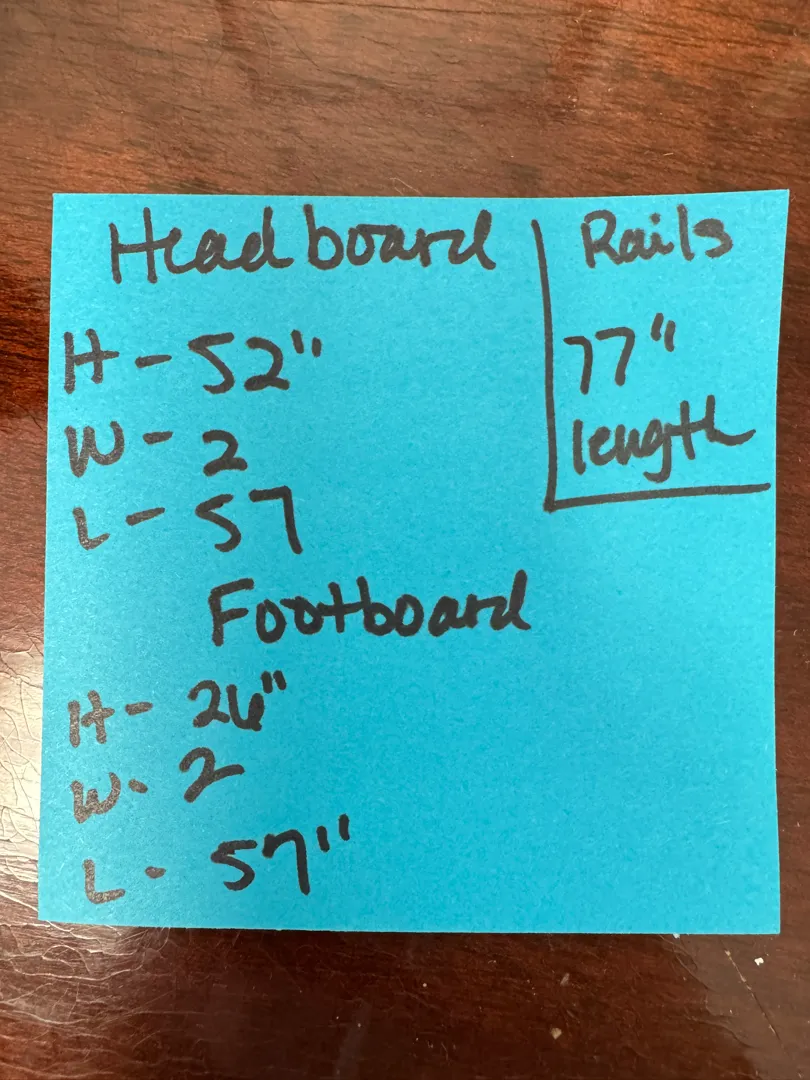 Headboard
H - 52"
W - 2
L - 57
Rails
77"
length
Footboard
H - 26"
W - 2
L - 57"